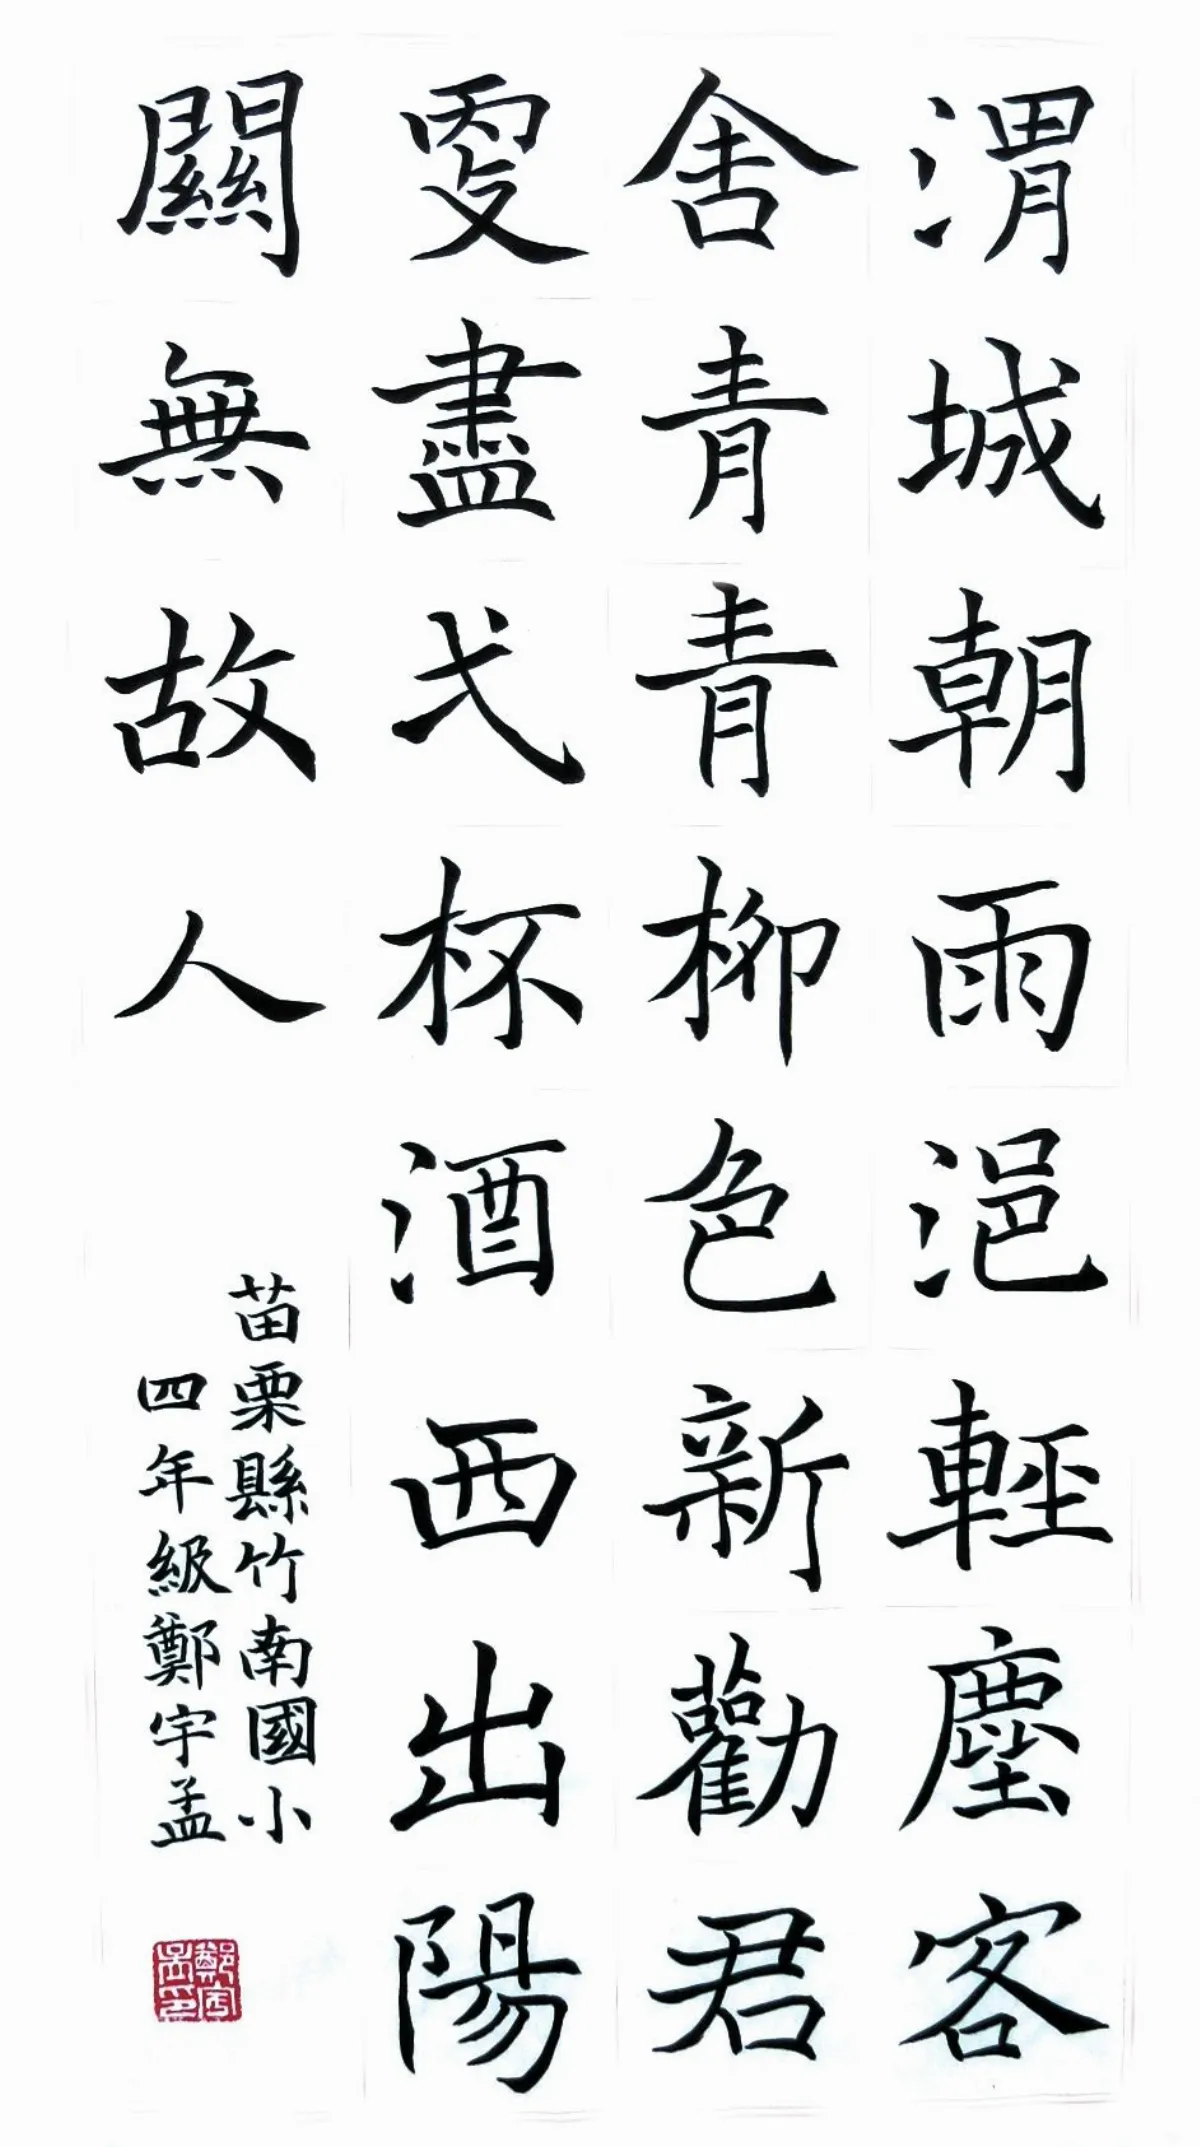 渭城朝雨浥輕塵客
舍青青柳色新勸君
㪅盡弌杯酒西出陽
關無故人
苗栗縣竹南國小
四年級鄭宇孟
鄭宇孟印